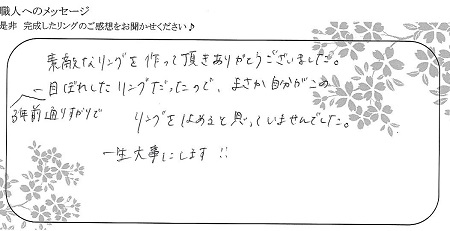 職人へのメッセージ
是非 完成したリングのご感想をお聞かせください♪
素敵なリングを作って頂きありがとうございました。
一目ぼれしたリングだったので、まさか自分がこの
3年前通りすがりで
リングをはめると思っていませんでした。
一生大事にします!!